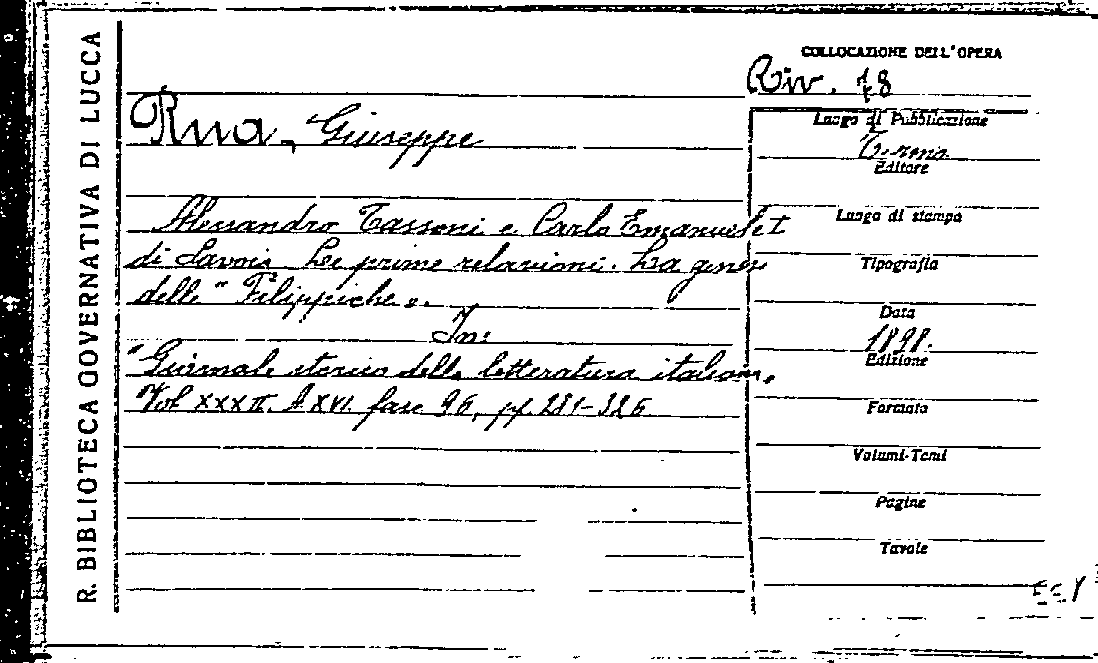 R. BIBLIOTECA GOVERNATIVA DI LUCCA
COLLOCAZIONE DELL'OPERA
Riv. 78
Rua, Giuseppe
Alessandro Tassoni e Carlo Emanuele I
di Savoia. Le prime relazioni. La genesi
delle "Filippiche".
In:
"Giornale storico della letteratura italiana,
Vol XXXII. A. XVI. fasc 96, pp. 281-326
Luogo di Pubblicazione
Torino
Editore
Luogo di stampa
Tipografia
Data
1898.
Edizione
Formato
Volumi-Tomi
Pagine
Tavole